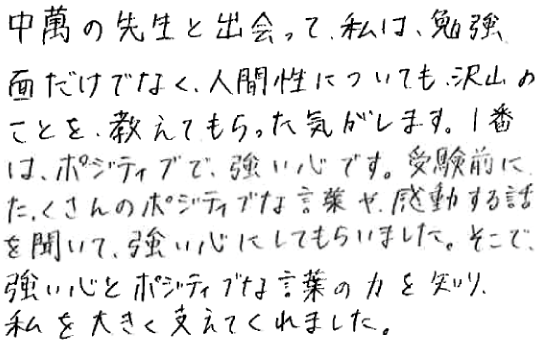 中萬の先生と出会って、私は、勉強
面だけでなく、人間性についても、沢山の
ことを、教えてもらった気がします。1番
は、ポジティブで、強い心です。受験前に
た、くさんのポジティブな言葉や、感動する話
を聞いて、強い心にしてもらいました。そこで、
強い心とポジティブな言葉の力を知り、
私を大きく支えてくれました。